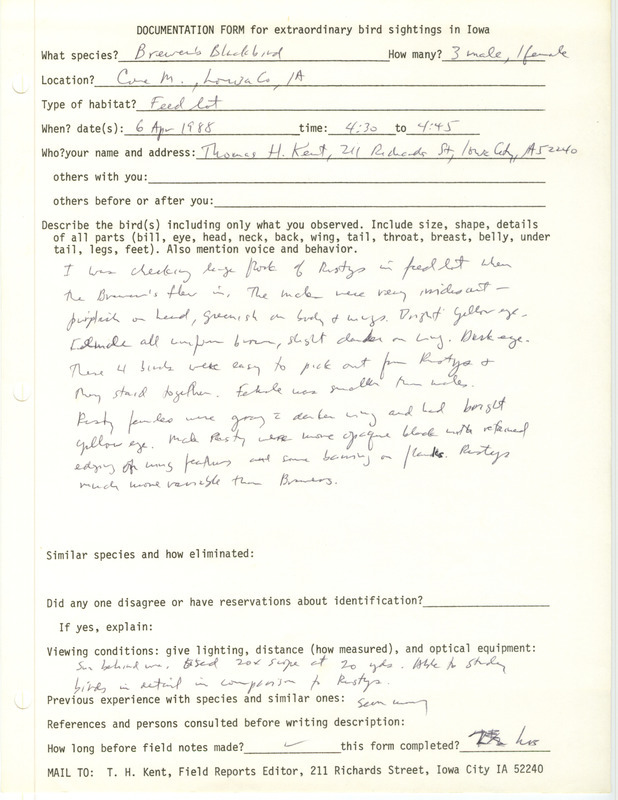 DOCUMENTATION FORM for extraordinary bird sightings in Iowa
What species? Brewer's Blackbird How many? 3 male, 1 female
Location? Cone M., Louisa Co, IA
Type of habitat? Feed lot
When? date(s): 6 Apr 1988 time: 4:30 to 4:45
Who?your name and address: Thomas H. Kent, 211 Richards St, Iowa City, IA 52240
others with you:
others before or after you:
Describe the bird(s) including only what you observed. Include size, shape, details
of all parts (bill, eye, head, neck, back, wing, tail, throat, breast, belly, under
tail, legs, feet). Also mention voice and behavior.
I was checking large flock of Rustys in feedlot when
the Brewer's flew in. The males were very iridescent -
purplish on head, greenish on body & wings. Bright yellow eye.
Female all uniform brown, slight darker on wing. Dark eye.
These 4 birds were easy to pick out from Rustys &
they stayed together. Female was smaller than males.
Rusty females were gray darker wing and had bright
yellow eye. Male Rusty were more opaque black with
edging of wing feathers and some barring on flanks. Rustys
much more variable than Brewers.
Similar species and how eliminated:
Did any one disagree or have reservations about identification?
If yes, explain:
Viewing conditions: give lighting, distance (how measured), and optical equipment:
Sun behind me. Used 20x scope at 20 yds. Able to study
birds in detail in comparison to Rustys.
Previous experience with species and similar ones: seen many
References and persons consulted before writing description:
How long before field notes made? ✓ this form completed? hrs
MAIL TO: T. H. Kent, Field Reports Editor, 211 Richards Street, Iowa City IA 52240